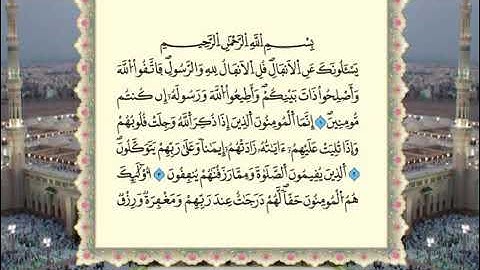 بِسْمِ اللَّهِ الرَّحْمَٰنِ الرَّحِيمِ
يَسْـَٔلُونَكَ عَنِ الْأَنفَالِ قُلِ الْأَنفَالُ لِلهِ وَالرَّسُولِ فَاتَّقُوا اللَّهَ
وَأَصْلِحُوا ذَاتَ بَيْنِكُمْ وَأَطِيعُوا اللَّهَ وَرَسُولَهُ إِن كُنتُم
مُّومِنِينَ ١ إِنَّمَا الْمُومِنُونَ الَّذِينَ إِذَا ذُكِرَ اللَّهُ وَجِلَتْ قُلُوبُهُمْ
وَإِذَا تُلِيَتْ عَلَيْهِمْ ءَايَٰتُهُ زَادَتْهُمْ إِيمَٰناً وَعَلَىٰ رَبِّهِمْ يَتَوَكَّلُونَ ٢
الَّذِينَ يُقِيمُونَ الصَّلَوٰةَ وَمِمَّا رَزَقْنَٰهُمْ يُنفِقُونَ ٣ أُوْلَٰٓئِكَ
هُمُ الْمُومِنُونَ حَقّاً لَّهُمْ دَرَجَٰتٌ عِندَ رَبِّهِمْ وَمَغْفِرَةٌ وَرِزْقٌ